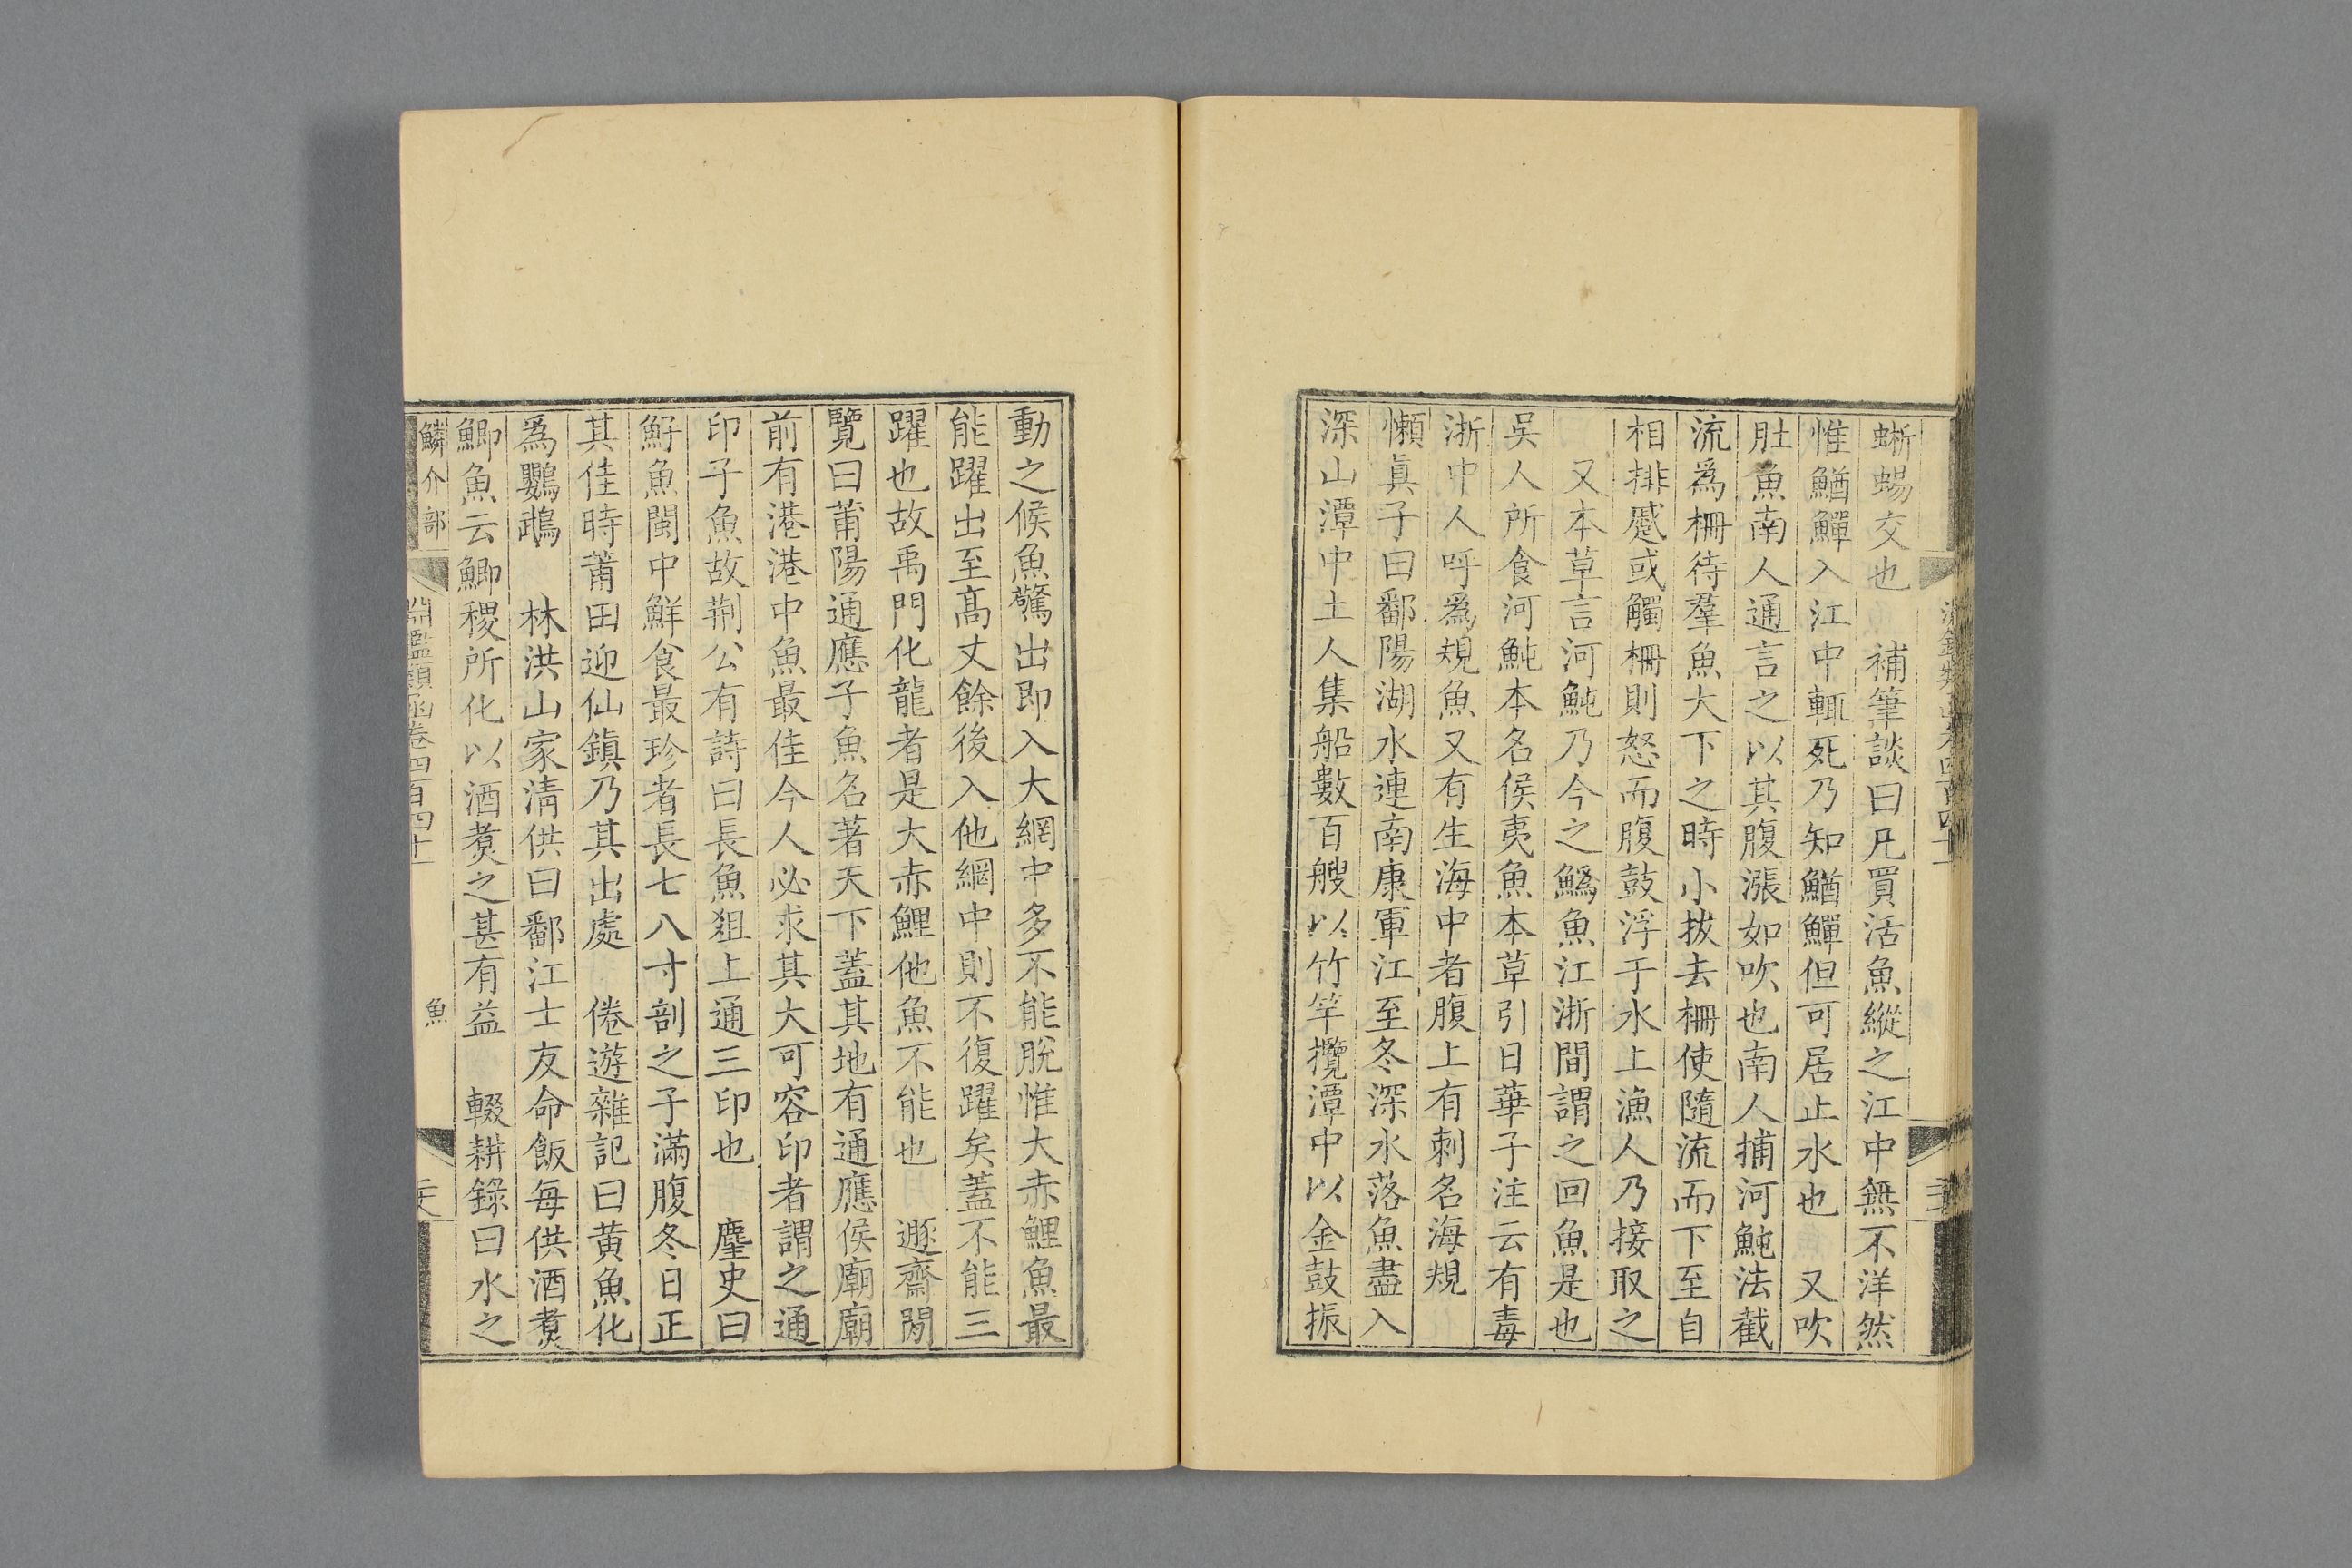 蜥蜴交也　補筆談曰凡買活魚縱之江中無不洋然
惟鰌鱓入江中輒死乃知鰌鱓但可居止水也　又吹
肚魚南人通言之以其腹漲如吹也南人捕河魨法截
流爲柵待羣魚大下之時小拔去柵使隨流而下至自
相排蹙或觸柵則怒而腹鼓浮于水上漁人乃接取之
又本草言河魨乃今之鰞魚江浙間謂之回魚是也
吳人所食河魨本名侯夷魚本草引日華子注云有毒
浙中人呼爲規魚又有生海中者腹上有刺名海規
懶眞子曰鄱陽湖水連南康軍江至冬深水落魚盡入
深山潭中土人集船數百艘以竹竿攪潭中以金鼓振
動之候魚驚出即入大網中多不能脫惟大赤鯉魚最
能躍出至高丈餘後入他網中則不復躍矣蓋不能三
躍也故禹門化龍者是大赤鯉他魚不能也　遯齋閒
覽曰莆陽通應子魚名著天下蓋其地有通應侯廟廟
前有港港中魚最佳今人必求其大可容印者謂之通
印子魚故荆公有詩曰長魚俎上通三印也　麈史曰
魣魚閩中鮮食最珍者長七八寸剖之子滿腹冬日正
其佳時莆田迎仙鎮乃其出處　倦遊雜記曰黃魚化
爲鸚鵡　林洪山家清供曰鄱江士友命飯每供酒煑
鯽魚云鯽稷所化以酒煑之甚有益　輟耕錄曰水之
鱗介部
淵鑑類函卷四百四十一
魚